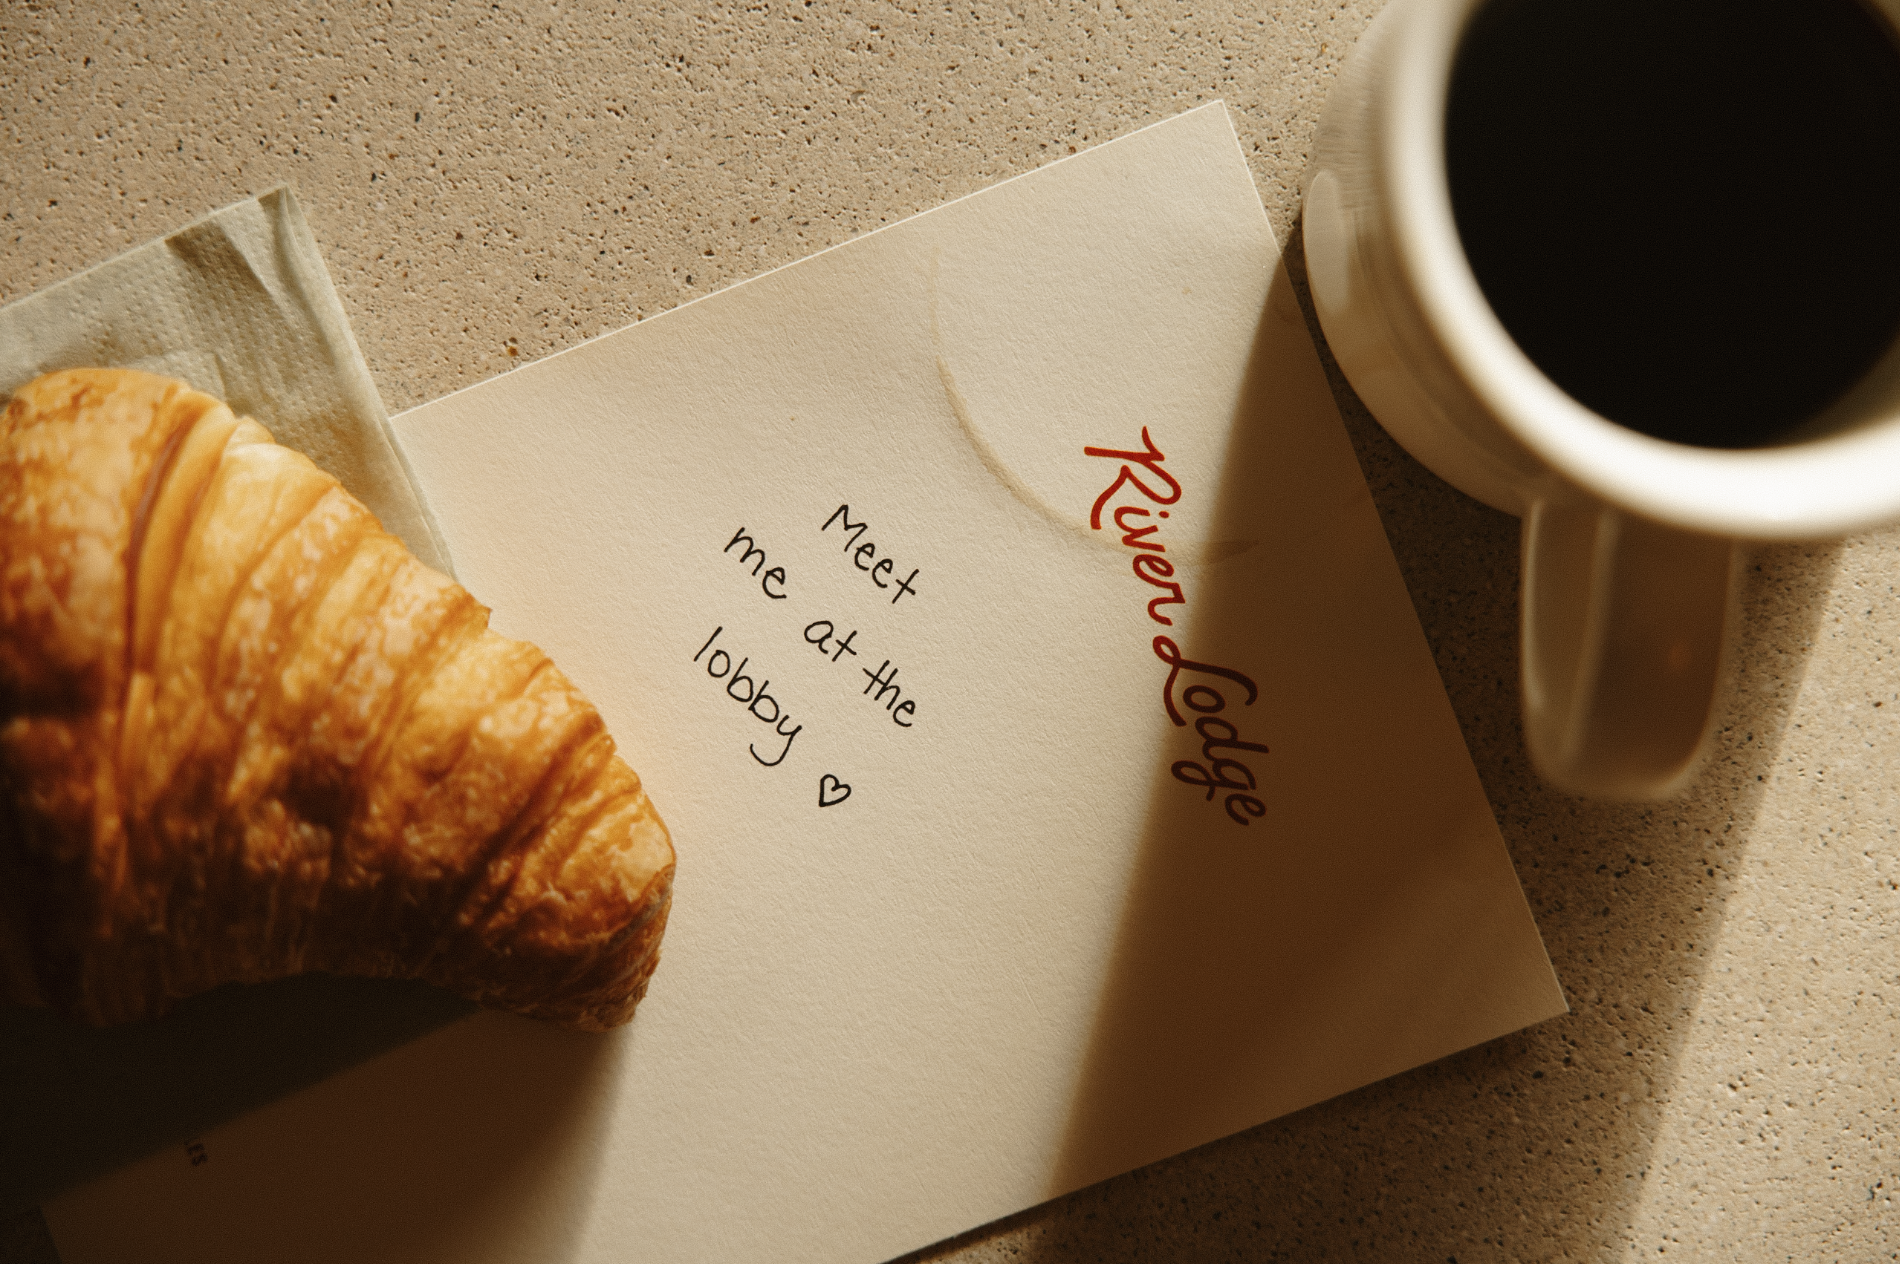 River Lodge
Meet
me at the
lobby ♡